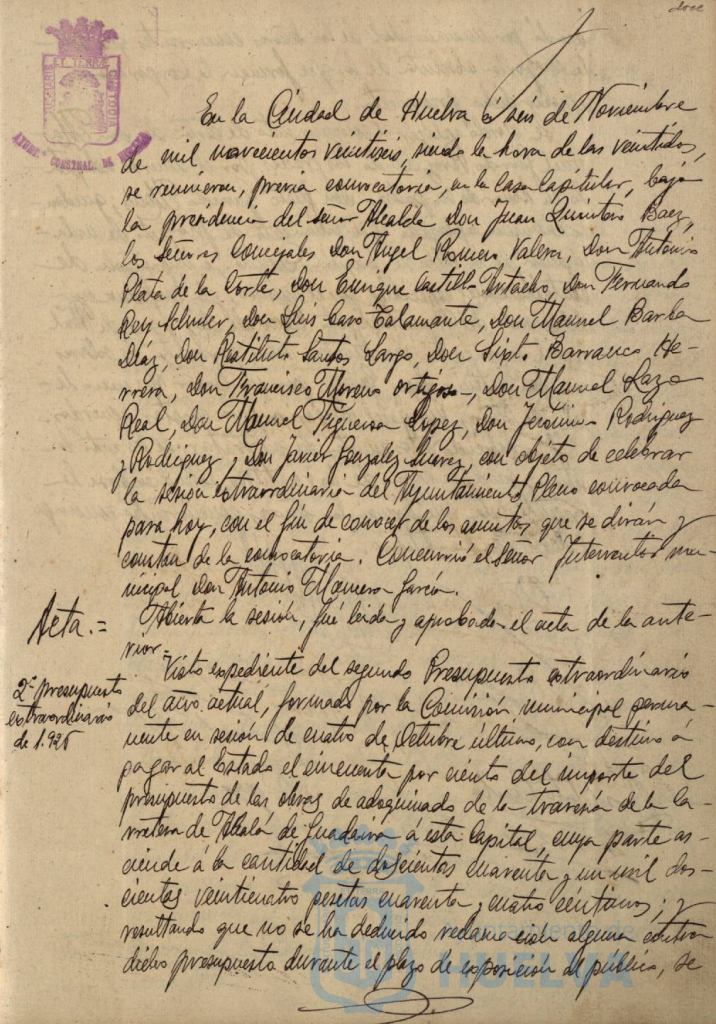 doce
En la Ciudad de Huelva á seis de Noviembre
de mil novecientos veintiseis, siendo la hora de las veintidos,
se reunieron, previa convocatoria, en la casa Capitular, bajo
la presidencia del señor Alcalde Don Juan Quintero Baez,
los Señores Concejales Don Angel Romero Valera, Don Antonio
Plata de la Corte, Don Enrique Castillo Artacho, Don Fernando
Rey Schuler, Don Luis Caro Talamante, Don Manuel Barba
Díaz, Don Restituto Santos Largo, Don Sixto Barranco He-
rrera, Don Francisco Moreno Ortigosa, Don Manuel Lazo
Real, Don Manuel Figueroa Lopez, Don Jerónimo Rodriguez
y Rodriguez y Don Javier Gonzalez Suarez, con objeto de celebrar
la sesion extraordinaria del Ayuntamiento Pleno convocada
para hoy, con el fin de conocer de los asuntos que se dirán y
constan de la convocatoria. Concurrió el Señor Interventor mu-
nicipal Don Antonio García.
Acta.= Abierta la sesión, fué leida y aprobada el acta de la ante-
rior.
2º presupuesto
extraordinario
de 1.926
Visto expediente del segundo Presupuesto extraordinario
del año actual, formado por la Comisión municipal perma-
nente en sesión de cuatro de Octubre último, con destino á
pagar al Estado el cincuenta por ciento del importe del
presupuesto de las obras de adoquinado de la travesía de la Ca-
rretera de Alcalá de Guadaira á esta Capital, cuya parte as-
ciende á la cantidad de doscientas cuarenta y un mil dos-
cientas veinticuatro pesetas cuarenta y cuatro céntimos; y
resultando que no se ha deducido reclamación alguna contra
dicho presupuesto durante el plazo de exposición al público, se
HUELVA